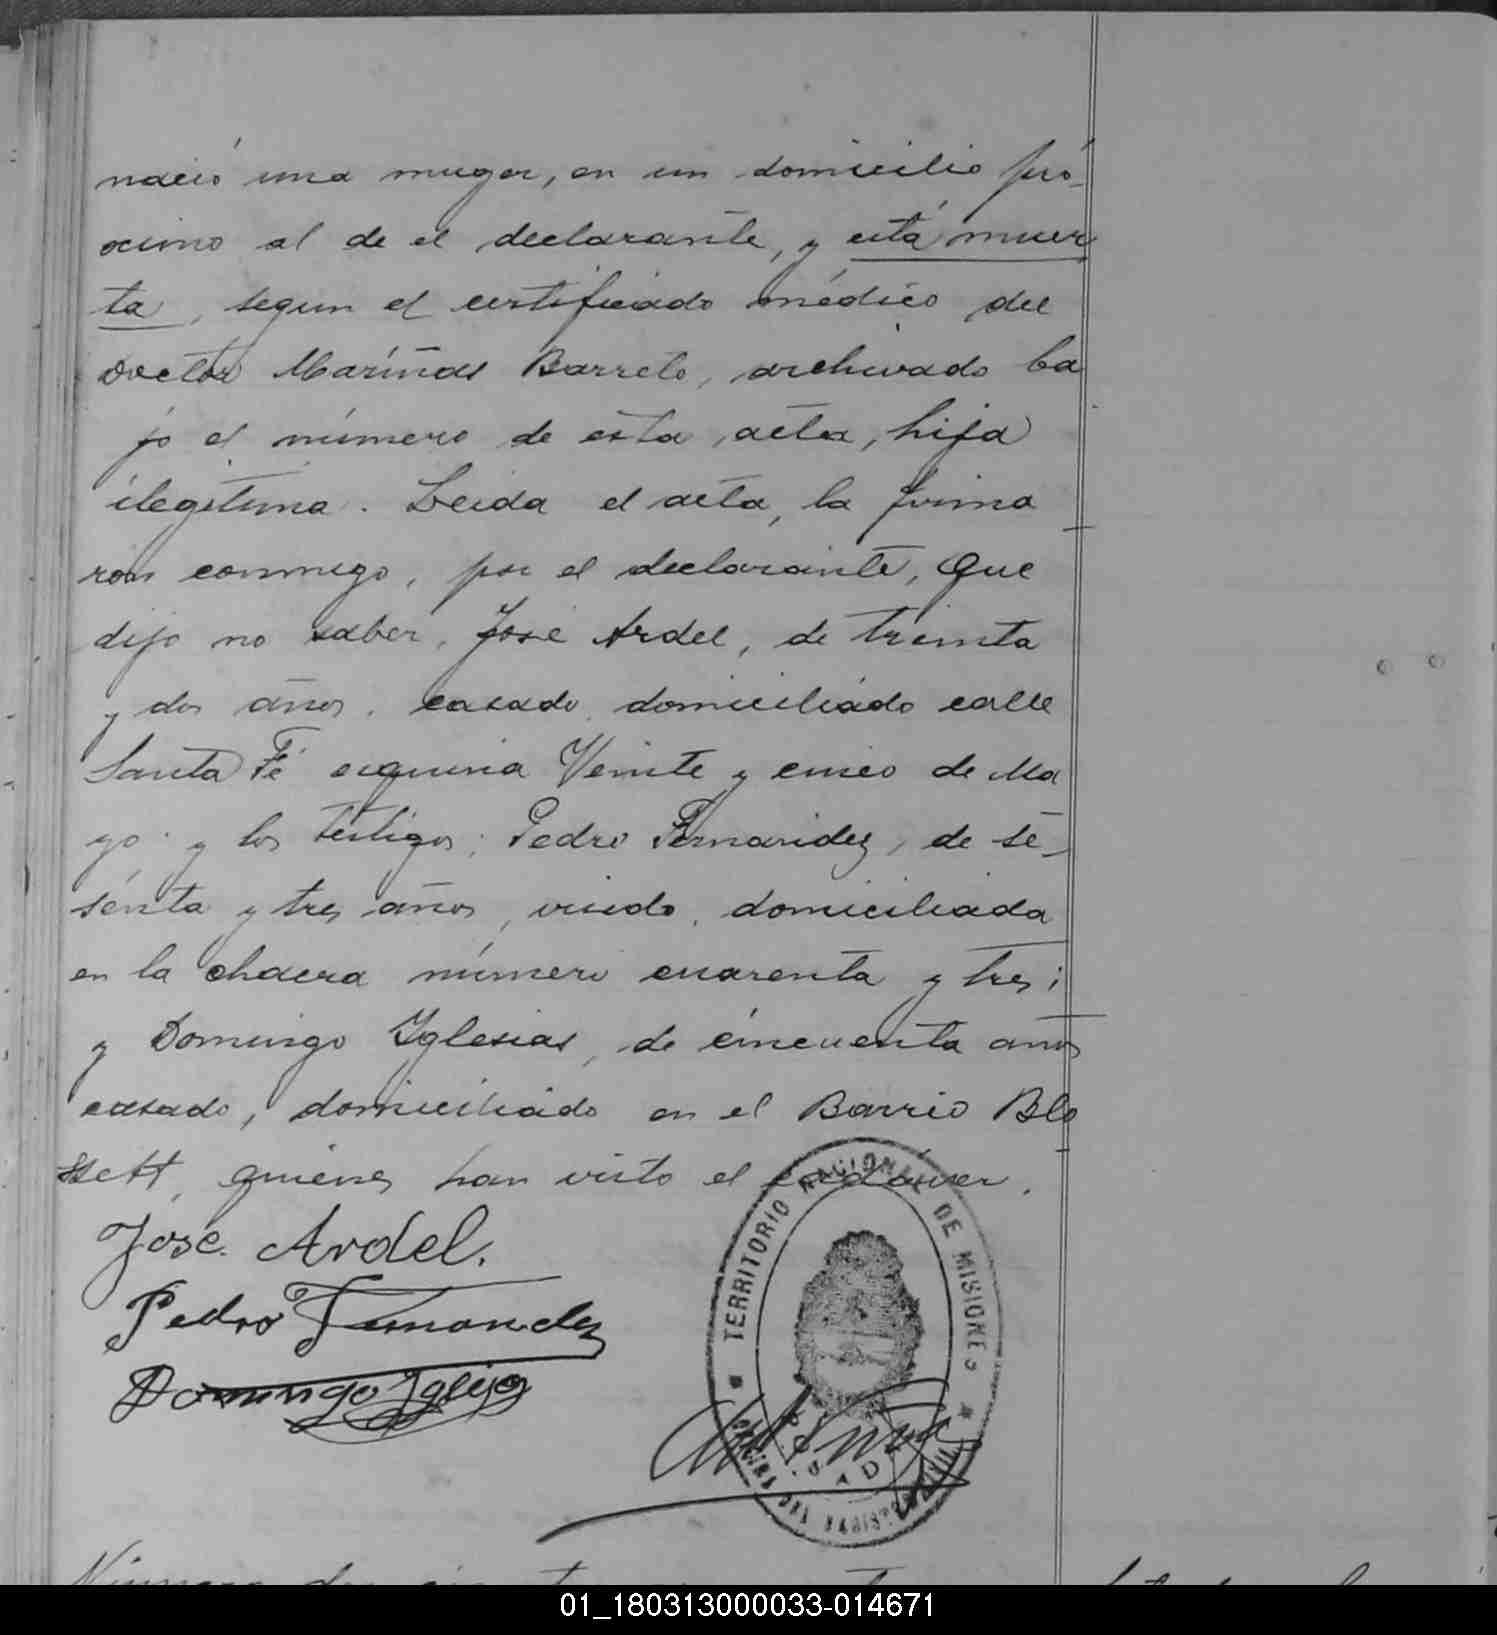 nació una muger, en un domicilio pró-
ocimo al de el declarante, y está muer
ta, segun el certificado médico del
Doctor Mariñas Barreto, archivado ba
jo el número de esta acta, hija
ilegitima. Leida el acta, la firma
ron conmigo, por el declarante, que
dijo no saber, José Ardel, de treinta
y dos años, casado, domiciliado calle
Santa Fé esquina Veinte y cinco de Ma
yo y los testigos; Pedro Fernandez, de se-
senta y tres años, viudo, domiciliada
en la chacra número cuarenta y tres;
y Domingo Iglesias, de cincuenta años
casado, domiciliado en el Barrio Blo
ssett, quienes han visto el cadáver.
José Ardel.
Pedro Fernandez
Domingo Iglesias
TERRITORIO NACIONAL DE MISIONES
OFICINA DEL REGISTRO CIVIL
POSADAS
01_180313000033-014671